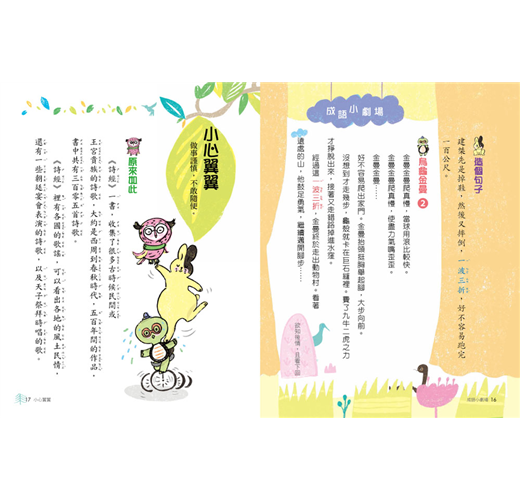 成語小劇場
造個句子
建騰先是掉鞋，然後又摔倒，一波三折，好不容易跑完
一百公尺。
烏龜金曼 2
金曼金曼爬真慢，當球用滾比較快。
金曼金曼爬真慢，使盡力氣嘴歪歪。
金曼金曼……
好不容易爬出家門。金曼抬頭挺胸舉起腳，大步向前。
沒想到才走幾步，龜殼就卡在巨石縫裡。費了九牛二虎之力
才掙脫出來，接著又走錯路掉進水窪。
經過這一波三折，金曼終於走出動物村。看著
遠處的山，他鼓足勇氣，繼續邁開腳步……
欲知後情，且看下回
成語小劇場 16
小心翼翼
做事謹慎，不敢隨便。
原來如此
《詩經》一書，收集了很多古時候民間或
王宮貴族的詩歌，大約是西周到春秋時代，五百年間的作品，
書中共有三百零五首詩歌。
《詩經》裡有各國的歌謠，可以看出各地的風土民情，
還有一些朝廷宴會表演的詩歌，以及天子祭拜時唱的歌。
17 小心翼翼